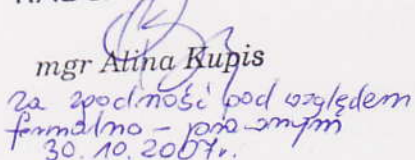 mgr Alina Kupis
za zgodność pod względem
formalno - prawnym
30.10.2007r.